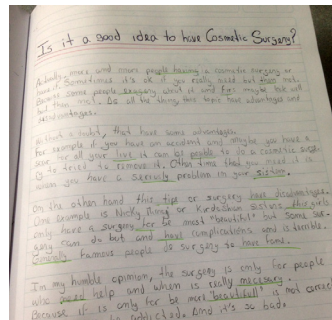 Is it a good idea to have Cosmetic Surgery?
Actually, more and more people having a cosmetic surgery or
have it. Sometimes it's ok if you really need but them not.
Because some people exagery about it and first maybe look well
but them not. As all the thing, this topic have advantages and
disadvantages.
without a doubt, that have some advantages.
For example if you have an accident and maybe you have a
scar for all your live it can be posible to do a cosmetic surge
to tried to remove it. Other time that you need it is
when you have a seriously problem in your sistem.
On the other hand this tips or surgery have disadvantages.
One example is Nicky Minaj or Kirdashian sisters, this girls
Only have a surgery for be most "beautiful" but some sur-
gery can do but and have complications and is terrible.
Generally famous people do surgery to have fame.
In my humble opinion, the surgery is only for people
who need help and when is really necesary.
Because if is only for be more "beautifull" is not correct
addicted. And it's so bad.